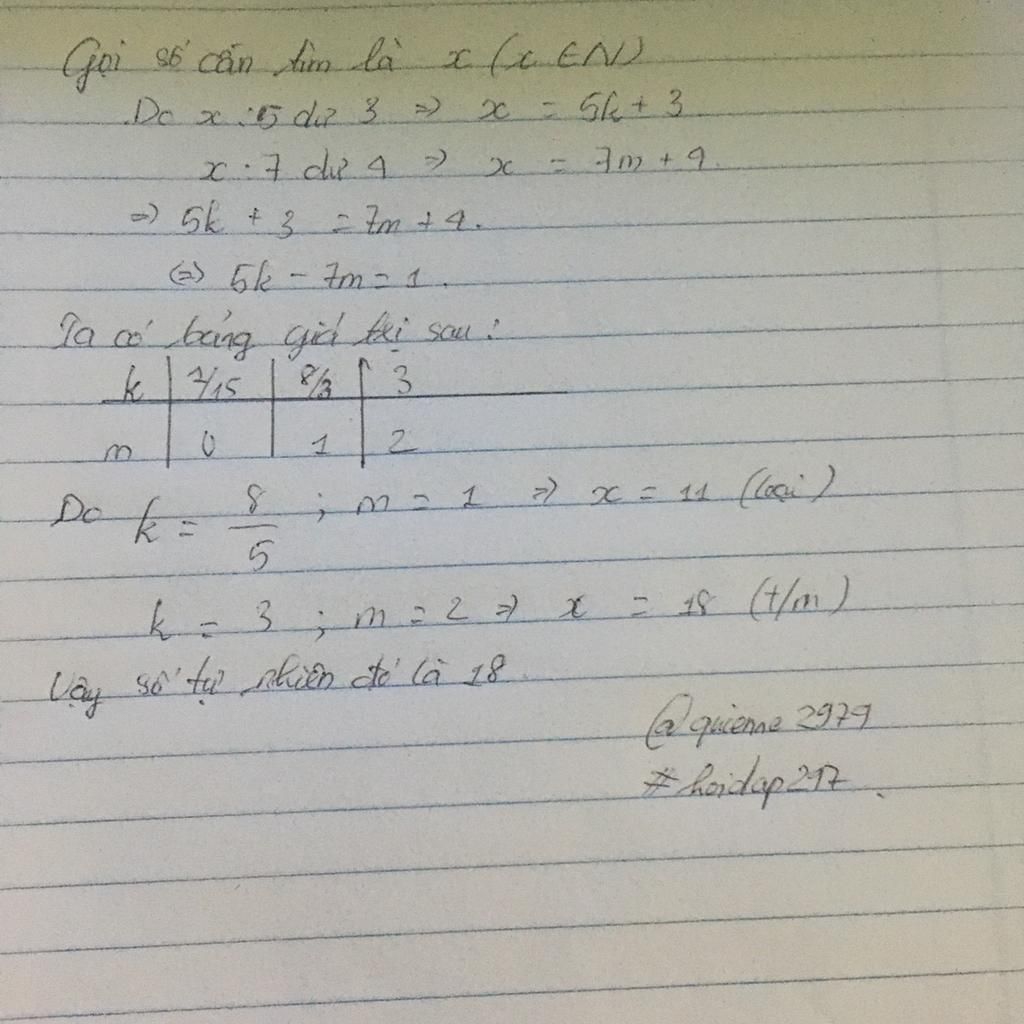 Gọi số cần tìm là x (x ∈ N)
Do x : 5 dư 3 => x = 5k + 3
x : 7 dư 4 => x = 7m + 4.
=> 5k + 3 = 7m + 4.
(=) 5k - 7m = 1.
Ta có bảng giá trị sau:
k | 1/15 | 8/3 | 3
m | 0 | 1 | 2
Do k = 8/5 ; m = 1 => x = 11 (loại)
k = 3 ; m = 2 => x = 18 (t/m)
Vậy số tự nhiên đó là 18.
@quienne2979
#hoidap247.